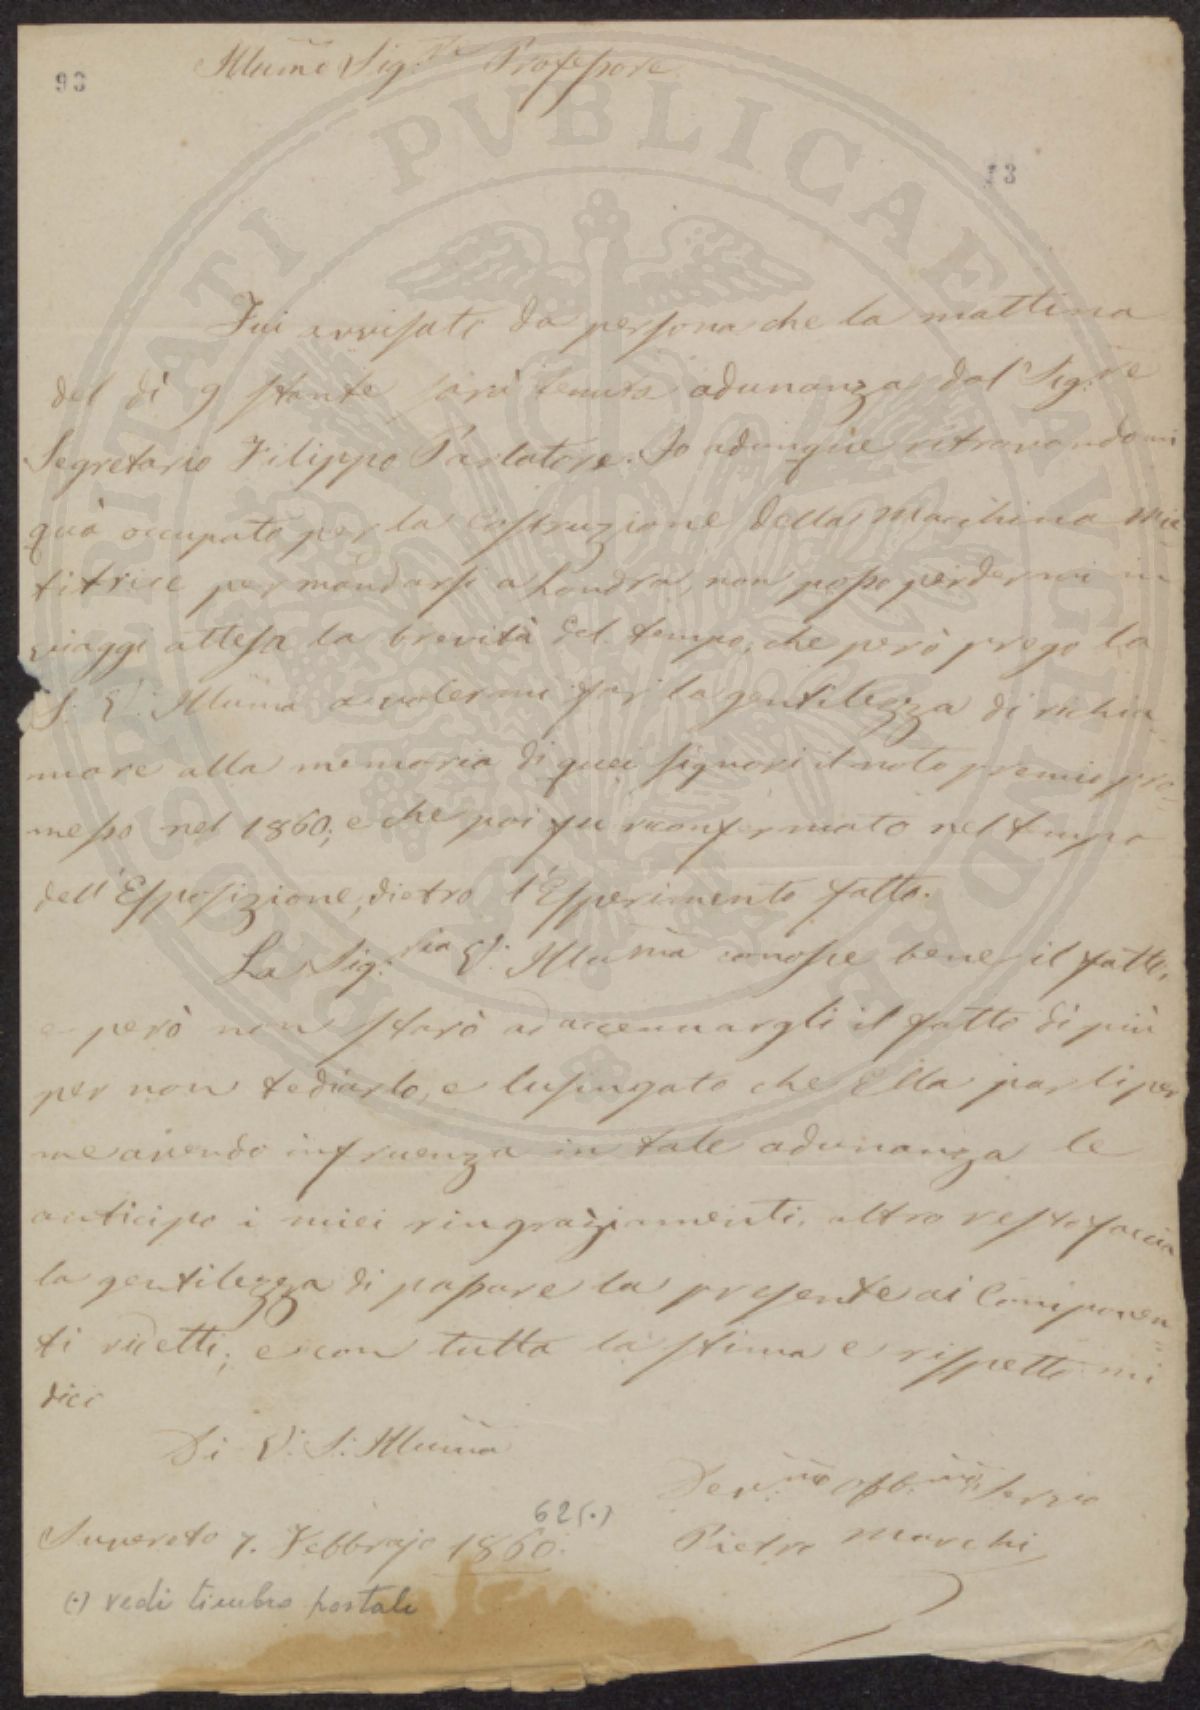 Illumo Sig.re Professore
93
13
Fui avvisato da persona che la mattina
del dì 9 stante sarà tenuta adunanza dal Sig.re
Segretario Filippo Parlatore. Io adunque ritrovandomi
quà occupato per la Costruzione della Macchina Mie-
titrice per mandarsi a Londra, non posso perdermi in
viaggi attesa la brevità del tempo, che però prego la
S. V. Illuma a volermi far la gentilezza di richia-
mare alla memoria di quei signori il noto premio pro-
messo nel 1860; e che poi fu riconfermato nel tempo
dell'Esposizione, dietro l'Esperimento fatto.
La Sig.ria V. Illuma conosce bene il fatto,
e però non starò ad accennargli il fatto di più
per non tediarlo, e lusingato che Ella parli per
me avendo infruenza in tale adunanza le
anticipo i miei ringraziamenti, altro resto faccia
la gentilezza di passare la presente ai Componen-
ti ridetti; e con tutta la stima e rispetto mi
dico
Di V. S. Illuma
Dev.mo Obb.mo Servo
62 (.)
Suvereto 7. Febbrajo 1860.
Pietro Marchi
(.) vedi timbro postale
PVBLICAE